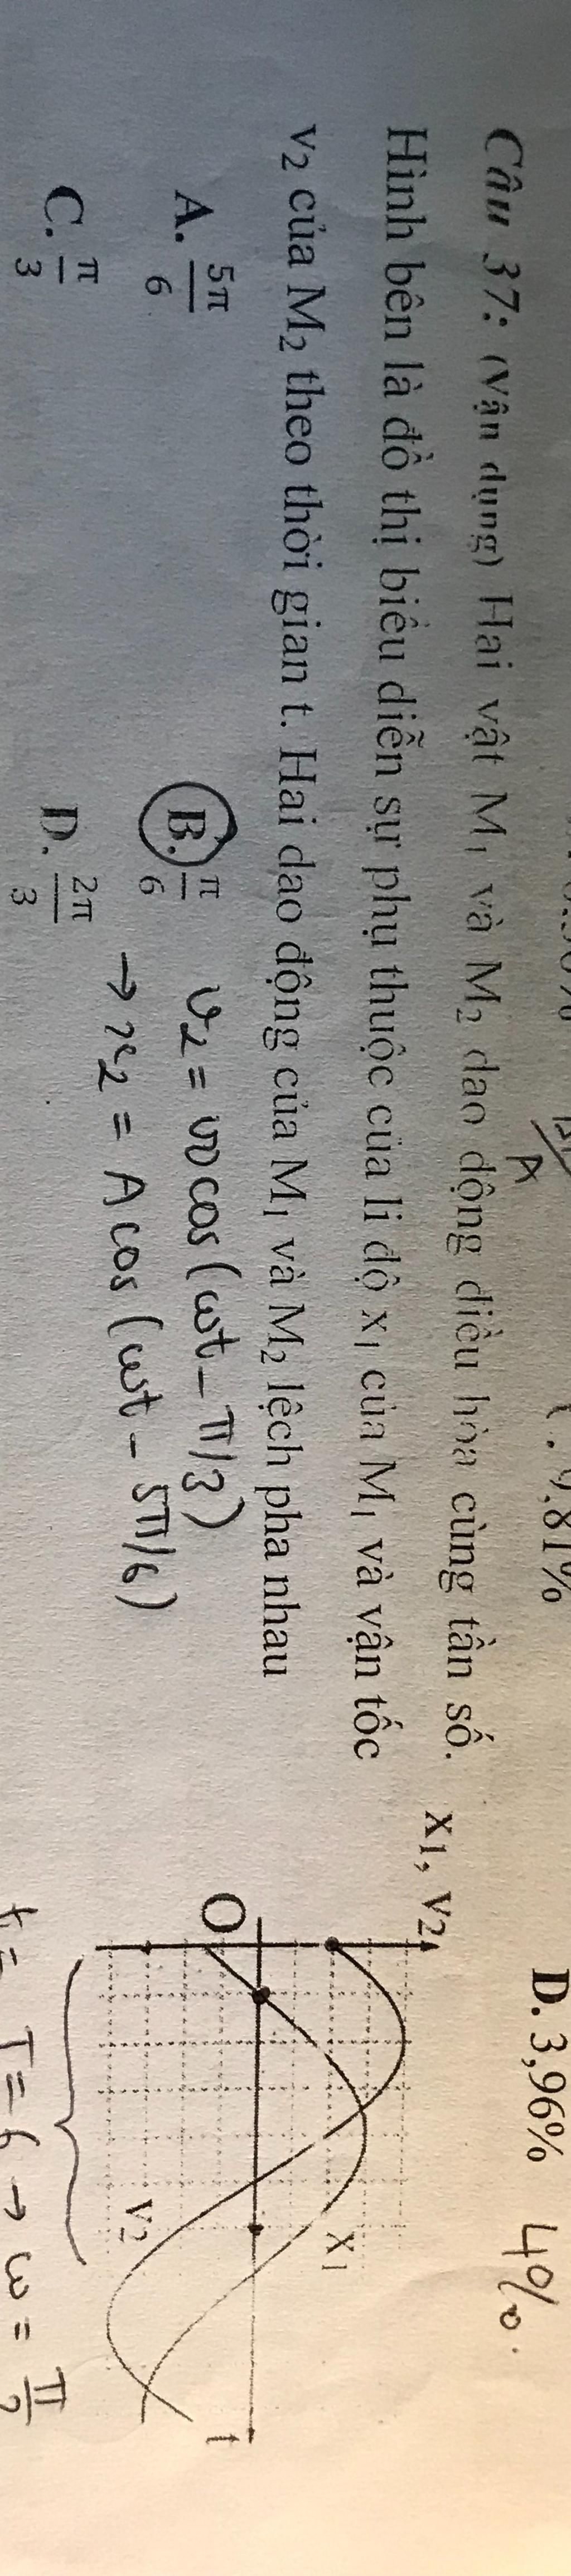 D. 3,96% 4%.
. 9.81%
A
Câu 37: (Vận dụng) Hai vật M₁ và M₂ dao động điều hòa cùng tần số.
Hình bên là đồ thị biểu diễn sự phụ thuộc của li độ x₁ của M₁ và vận tốc
v₂ của M₂ theo thời gian t. Hai dao động của M₁ và M₂ lệch pha nhau
A. 5π/6
B. π/6
v₂ = ∞cos(ωt - π/3)
→ x₂ = Acos(ωt - 5π/6)
C. π/3
D. 2π/3
x₁, v₂
O
x₁
v₂
t
T = 6 → ω = π